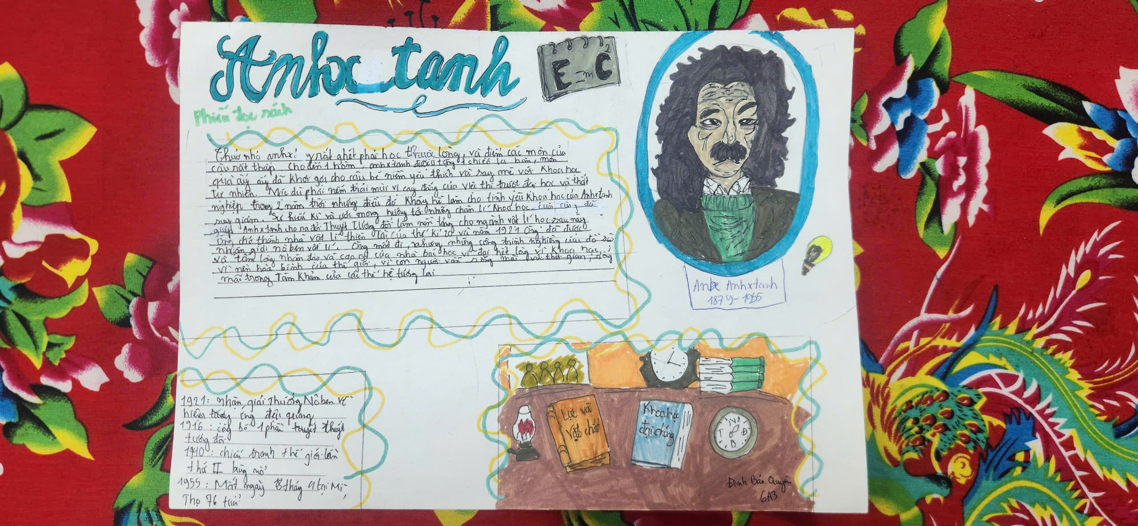 Anhxtanh
E=mC²
Phiếu đọc sách
Thuở nhỏ anhxtanh rất ghét phải học thuộc lòng, và điểm các môn của
cậu rất thấp. Cho đến 1 hôm, anhxtanh được bố tặng 1 chiếc la bàn, món
quà ấy đã khơi gợi cho cậu bé niềm yêu thích và say mê với khoa học
tự nhiên. Mặc dù phải nếm trải mùi vị cay đắng của việc thi trượt đại học và thất
nghiệp trong 2 năm trời nhưng điều đó không hề làm cho tình yêu khoa học của Anhxtanh
suy giảm. Sự hiếu kì và ước mong hướng tới những chân lí khoa học của ông đã
giúp Anhxtanh cho ra đời Thuyết Tương đối làm nền tảng cho ngành vật lí học sau này
ông trở thành nhà vật lí thiên tài của thế kỉ và năm 1921 ông đã được
nhận giải nô ben vật lí. Ông mất đi, nhưng những công trình nghiên cứu đồ sộ
và tấm lòng nhân đạo và cao cả của nhà bác học vĩ đại hết lòng vì khoa học,
vì nền hòa bình của thế giới, vì con người vẫn sống mãi với thời gian, sống
mãi trong Tâm Khảm của các thế hệ tương lai
Anbe Anhxtanh
1879-1955
1921: Nhận giải Thưởng Nôben về
hiệu ứng quang
1916: công bố 1 phần thuyết
tương đối
1940: chiến tranh thế giới lần
thứ II bùng nổ
1955: Mất ngày 18 tháng 4 tại Mĩ,
Thọ 76 tuổi
Lực và
Vật chất
Khoa học
đại chúng
Đinh Bảo Quyên
6A3